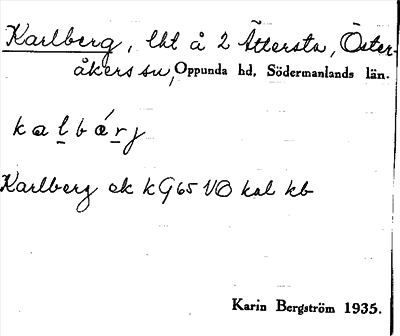 Karlberg, lht å 2 Ättersta, Öster-
åkers sn, Oppunda hd, Södermanlands län.
ka l̠ b á r̠ j
Karlberg ek k G 65 VO kal kb
Karin Bergström 1935.